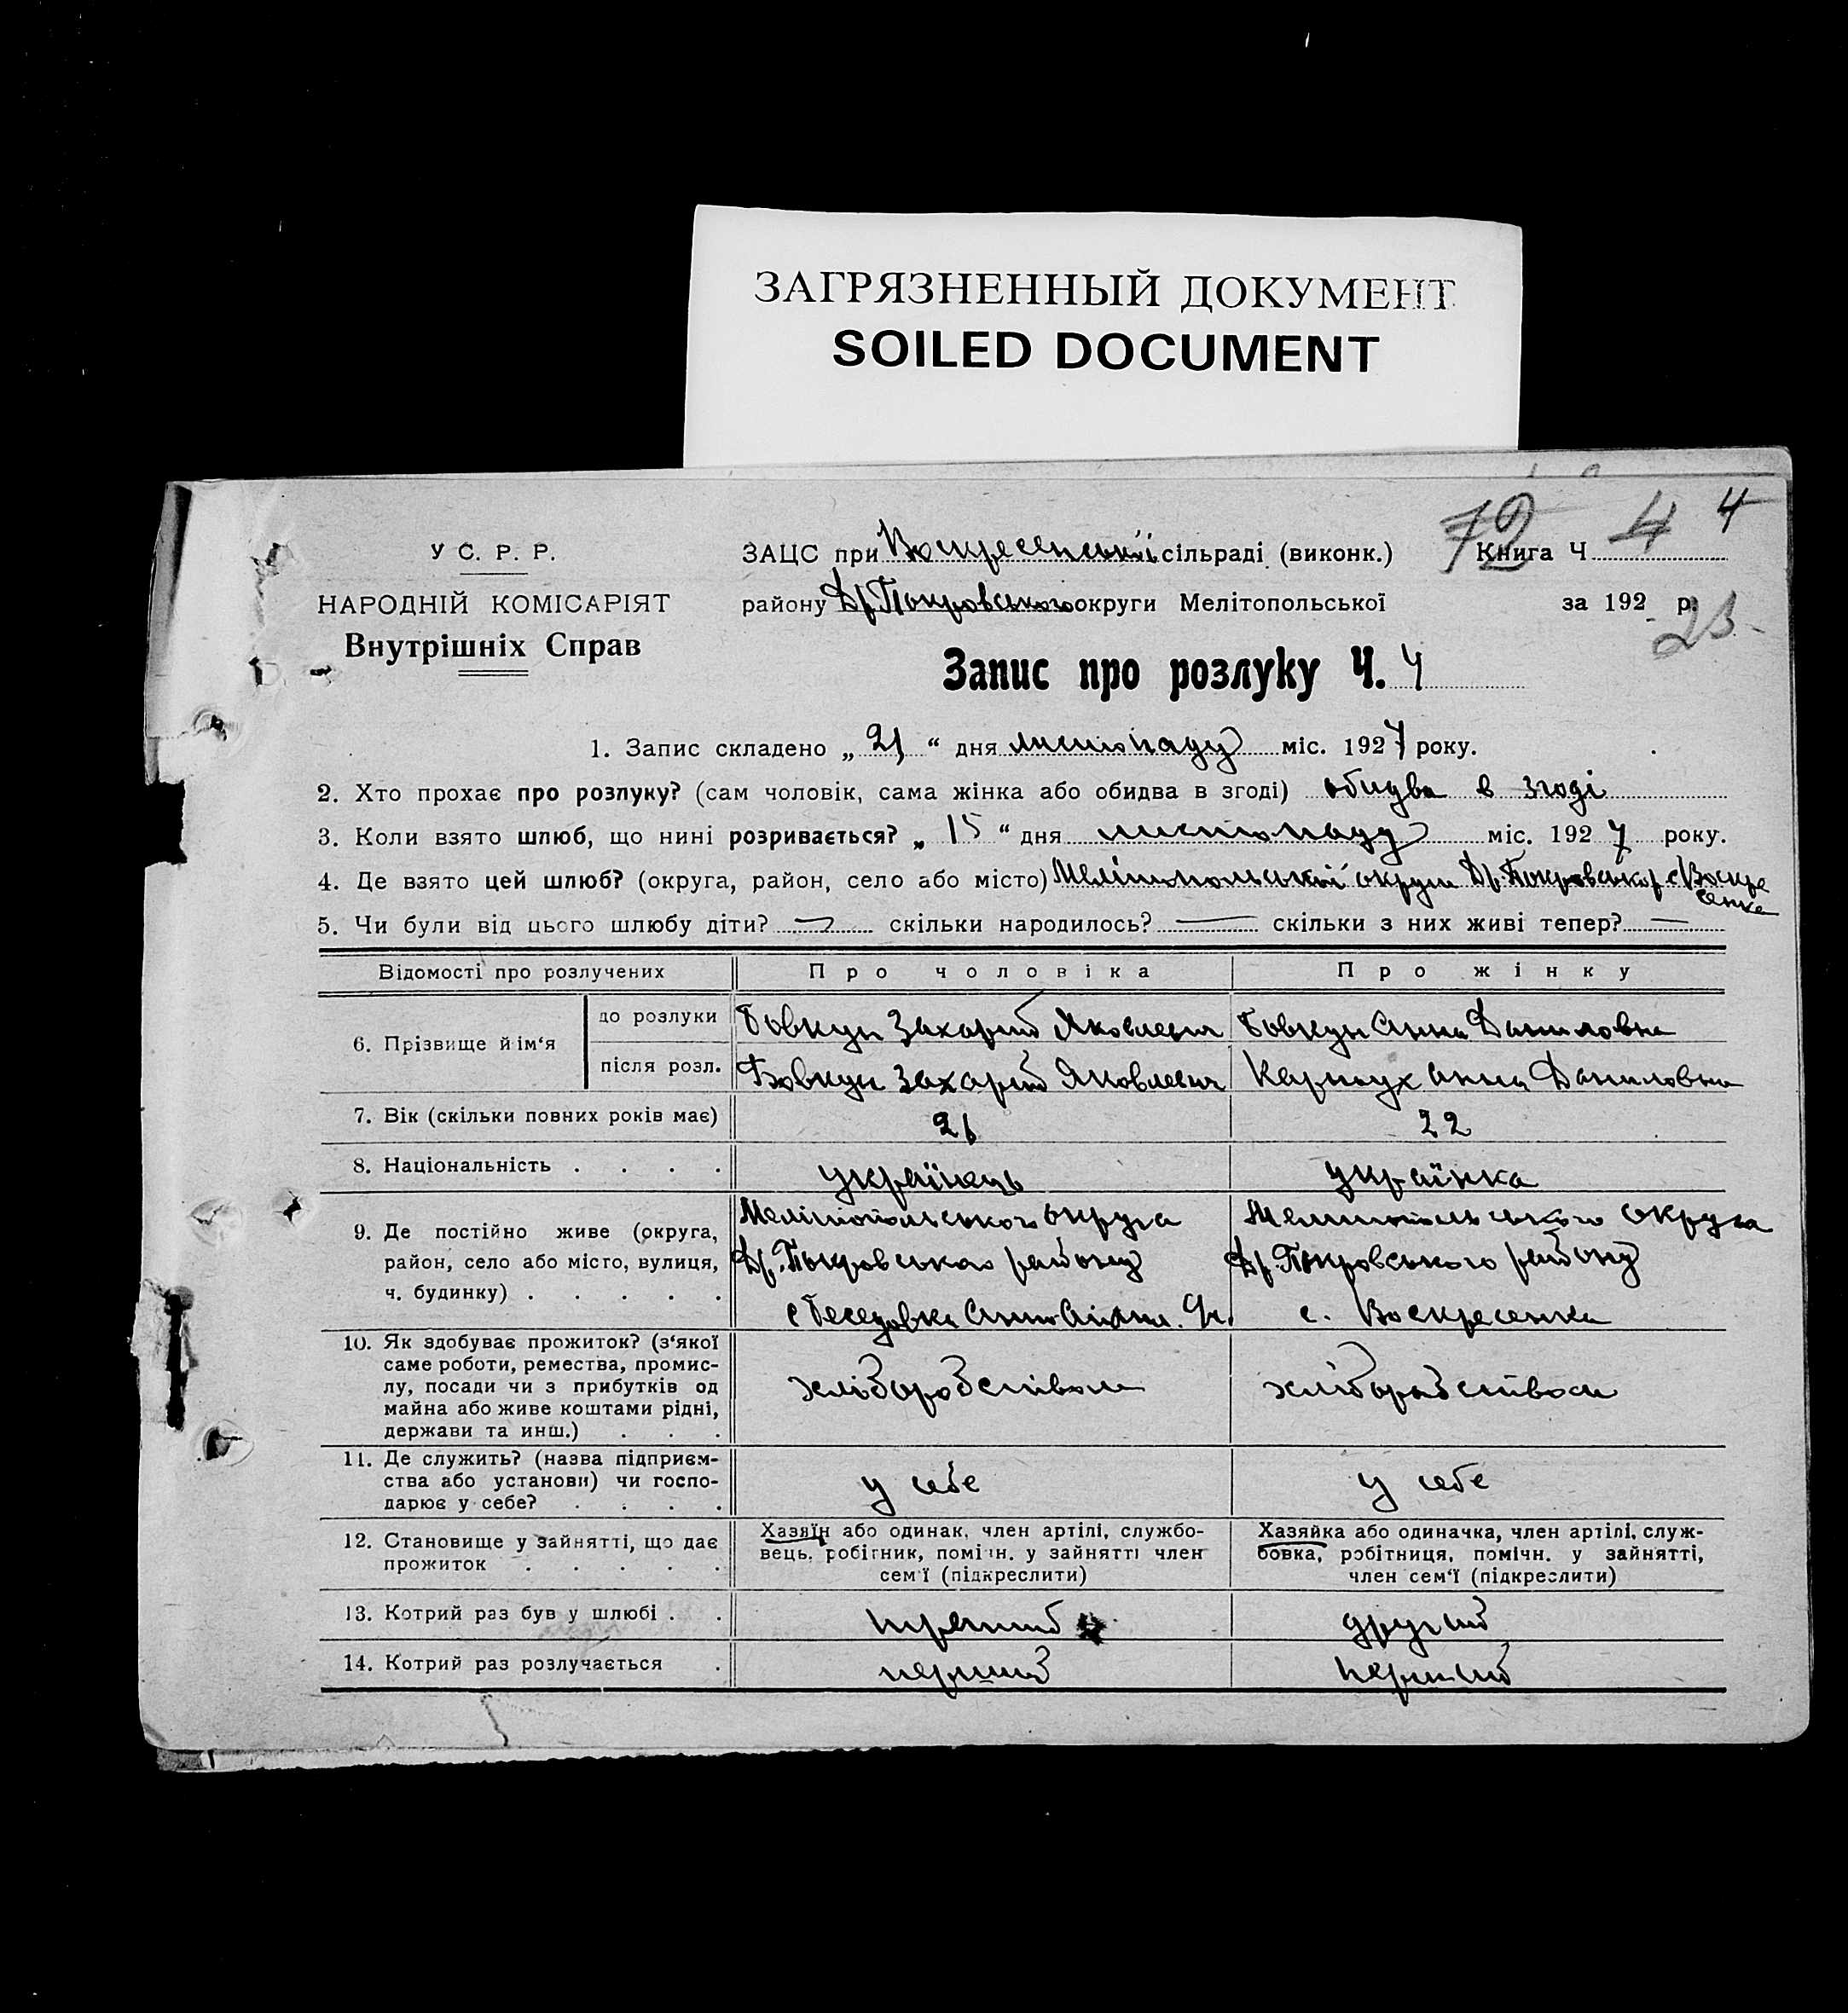 ЗАГРЯЗНЕННЫЙ ДОКУМЕНТ
SOILED DOCUMENT
72 4 4
У С. Р. Р.
НАРОДНІЙ КОМІСАРІЯТ
Внутрішніх Справ
ЗАЦС при Воскресенській сільраді (виконк.) Книга Ч
району Др. Покровського округи Мелітопольської за 192 р.
23
Запис про розлуку Ч. 4
1. Запис складено „ 21 “ дня листопаду міс. 1927 року.
2. Хто прохає про розлуку? (сам чоловік, сама жінка або обидва в згоді) обидва в згоді
3. Коли взято шлюб, що нині розривається? „ 15 “ дня листопаду міс. 1927 року.
4. Де взято цей шлюб? (округа, район, село або місто) Мелітопольській округи Др. Покровськ р. с Воскре
сенка
5. Чи були від цього шлюбу діти? — скільки народилось? — скільки з них живі тепер? —
Відомості про розлучених Про чоловіка Про жінку
6. Прізвище й ім‘я
до розлуки Бовкун Захарий Яковлевич Бовкун Анна Даниловна
після розл. Бовкун Захарий Яковлевич Карнаух Анна Даниловна
7. Вік (скільки повних років має) 21 22
8. Національність . . . . українець українка
9. Де постійно живе (округа, район, село або місто, вулиця, ч. будинку) . . . . .
Мелітопольського округа
Др. Покровського району
с Беседовка
Мелитопольського округа
Др. Покровського району
с. Воскресенка
10. Як здобуває прожиток? (з‘якої
саме роботи, ремества, промис-
лу, посади чи з прибутків од
майна або живе коштами рідні,
держави та инш.) . . .
хліборобством хліборобством
11. Де служить? (назва підприєм-
ства або установи) чи госпо-
дарює у себе? . . . .
у себе у себе
12. Становище у зайнятті, що дає
прожиток . . . . .
Хазяїн або одинак, член артілі, службо-
вець, робітник, помічн. у зайнятті член
сем‘ї (підкреслити)
Хазяйка або одиначка, член артілі, служ-
бовка, робітниця, помічн. у зайнятті,
член сем‘ї (підкреслити)
13. Котрий раз був у шлюбі . . другий
14. Котрий раз розлучається . перший перший